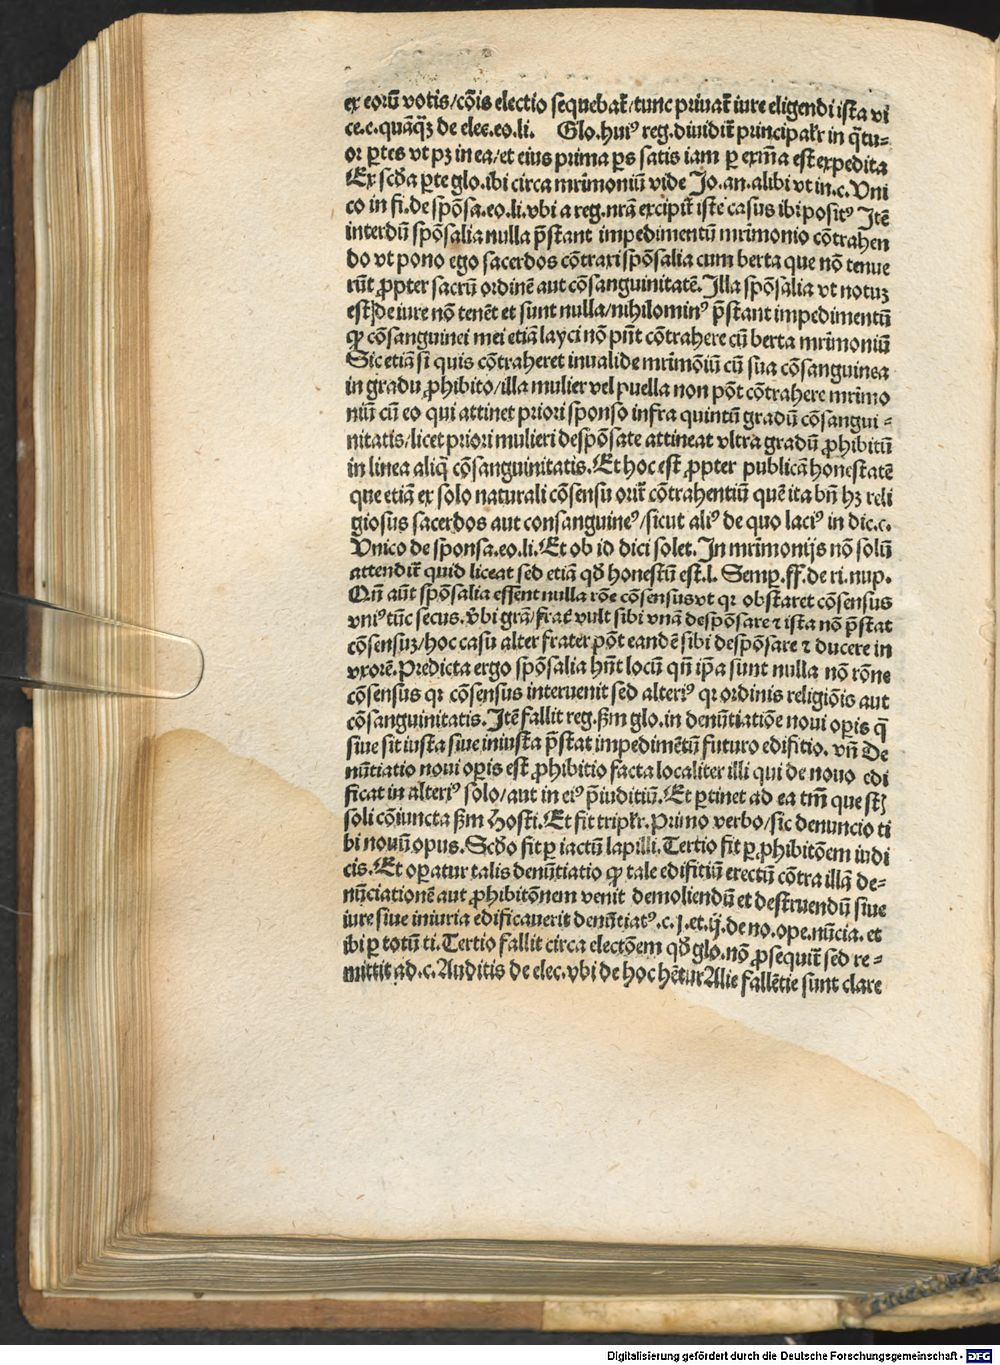 ex eorū votis/cōis electio sequebat̄/tunc priuat̄ iure eligendi ista vi
ce.c.quāq̄ꝫ de elec.eo.li. Glo.huiꝰ reg.diuidit̄ principalr̄ in q̄tu⸗
or ꝑtes vt pꝫ in ea/et eius prima ꝑs satis iam ꝑ exm̄a est expedita
Ex scḋa ꝑte glo.ibi circa mr̄imoniū vide Jo.an.alibi vt in.c.Vni
co in fi.de spōsa.eo.li.vbi a reg.nr̄a excipit̄ iste casus ibi positꝰ Jtē
interdū spōsalia nulla p̄stant impedimentū mr̄imonio cōtrahen
do vt pono ego sacerdos cōtraxi spōsalia cum berta que nō tenue
rūt ꝓpter sacrū ordinē aut cōsanguinitatē.Jlla spōsalia vt notuꝫ
est/de iure nō tenēt et sunt nulla/nihilominꝰ p̄stant impedimentū
ꝙ cōsanguinei mei etiā layci nō pn̄t cōtrahere cū berta mr̄imoniū
Sic etiā si quis cōtraheret inualide mr̄imōiū cū sua cōsanguinea
in gradu ꝓhibito/illa mulier vel puella non pōt cōtrahere mr̄imo
niū cū eo qui attinet priori sponso infra quintū gradū cōsangui⸗
nitatis/licet priori mulieri despōsate attineat vltra gradū ꝓhibitū
in linea aliq̄ cōsanguinitatis.Et hoc est ꝓpter publicā honestatē
que etiā ex solo naturali cōsensu orit̄ cōtrahentiū quē ita bn̄ hꝫ reli
giosus sacerdos aut consanguineꝰ/sicut aliꝰ de quo laciꝰ in dic.c.
Vnico de sponsa.eo.li.Et ob id dici solet.Jn mr̄imonijs nō solū
attendit̄ quid liceat sed etiā qḋ honestū est.l. Semꝑ.ff.de ri.nup.
Qn̄ aūt spōsalia essent nulla rōe cōsensus vt qꝛ obstaret cōsensus
vniꝰ tūc secus.v̄bi grā/frat̄ vult sibi vnā despōsare ⁊ ista nō p̄stat
cōsensuꝫ/hoc casu alter frater pōt eandē sibi despōsare ⁊ ducere in
vxorē.Predicta ergo spōsalia hn̄t locū qn̄ ip̄a sunt nulla nō rōne
cōsensus qꝛ cōsensus interuenit sed alteriꝰ qꝛ ordinis religiōis aut
cōsanguinitatis.Jtē fallit reg.ẜm glo.in denūtiatiōe noui oꝑis q̄
siue sit iusta siue iniusta p̄stat impedimētū futuro edifitio. vn̄ De
nūtiatio noui oꝑis est ꝓhibitio facta localiter illi qui de nouo edi
ficat in alteriꝰ solo/aut in eiꝰ p̄iuditiū.Et ꝑtinet ad ea tm̄ que st̄
soli cōiuncta ẜm Hosti.Et fit triplr̄.Primo verbo/sic denuncio ti
bi nouū opus.Scḋo fit ꝑ iactū lapilli.Tertio fit ꝑ ꝓhibitōem iudi
cis.Et oꝑatur talis denūtiatio ꝙ tale edifitiū erectū cōtra illā de⸗
nūciationē aut ꝓhibitōnem venit demoliendū et destruendū siue
iure siue iniuria edificauerit denūtiatꝰ.c.j.et.ij.de no.ope.nūcia. et
ibi ꝑ totū ti.Tertio fallit circa electōem qḋ glo.nō ꝓsequit̄ sed re⸗
mittit ad.c.Auditis de elec.vbi de hoc hētur Alie fallētie sunt clare
Digitalisierung gefördert durch die Deutsche Forschungsgemeinschaft - DFG